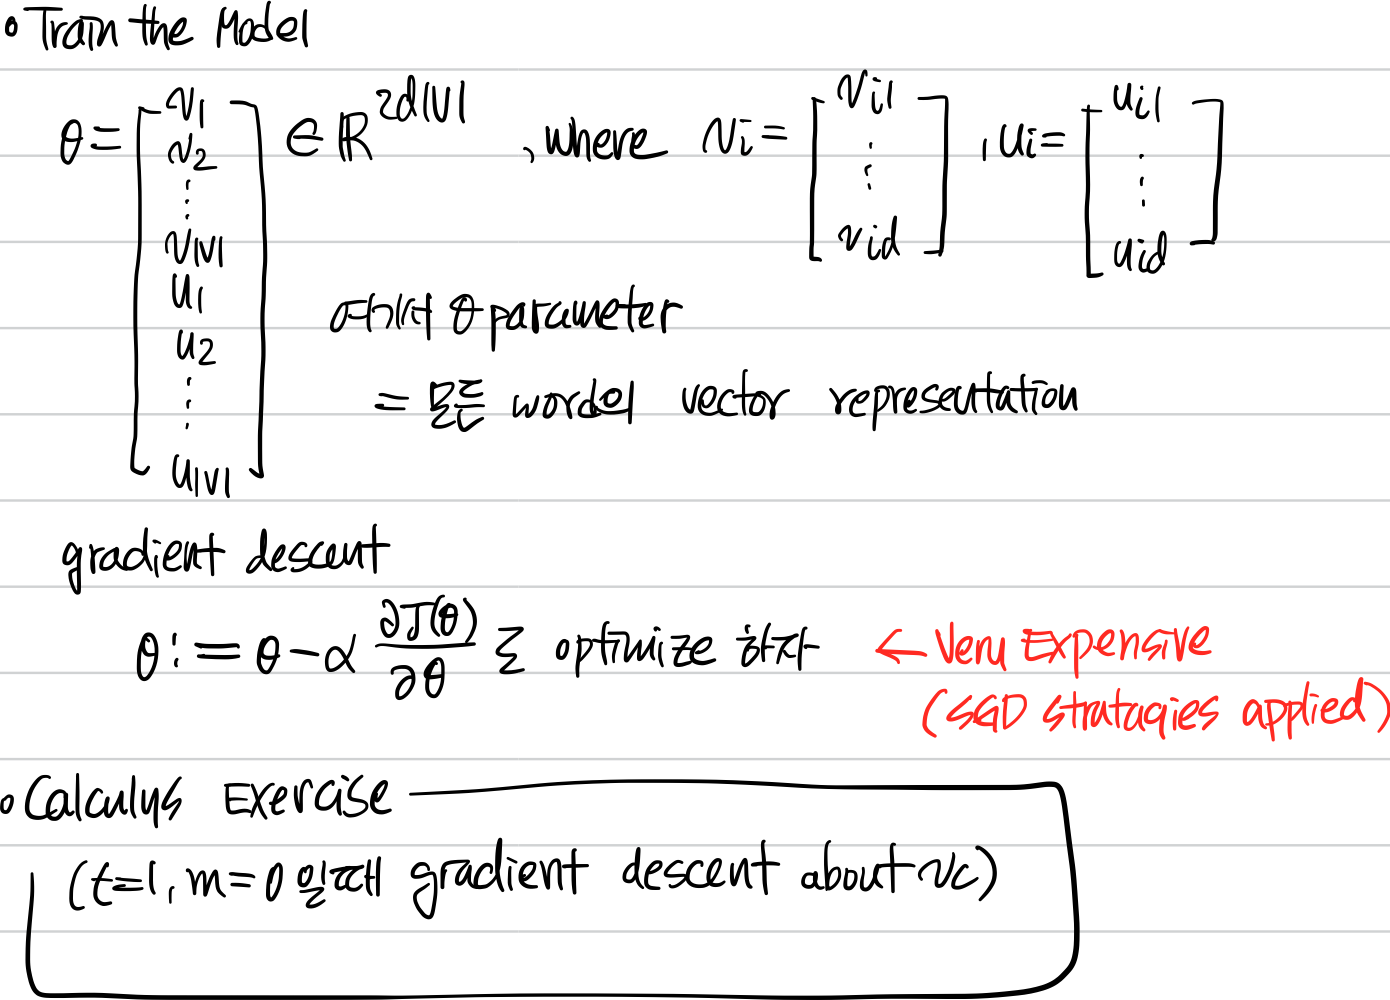 • Train the Model
θ = [ v1 v2 ⋮ v|V| u1 u2 ⋮ u|V| ] ∈ ℝ^2d|V| , where vi = [ vi1 ⋮ vid ] , ui = [ ui1 ⋮ uid ]
여기서 θ parameter
= 모든 word의 vector representation
gradient descent
θ := θ - α ∂J(θ)/∂θ 로 optimize 하자 ← Very Expensive
(SGD stratagies applied)
• Calculus Exercise
(t=1, m=0 일때 gradient descent about vc)